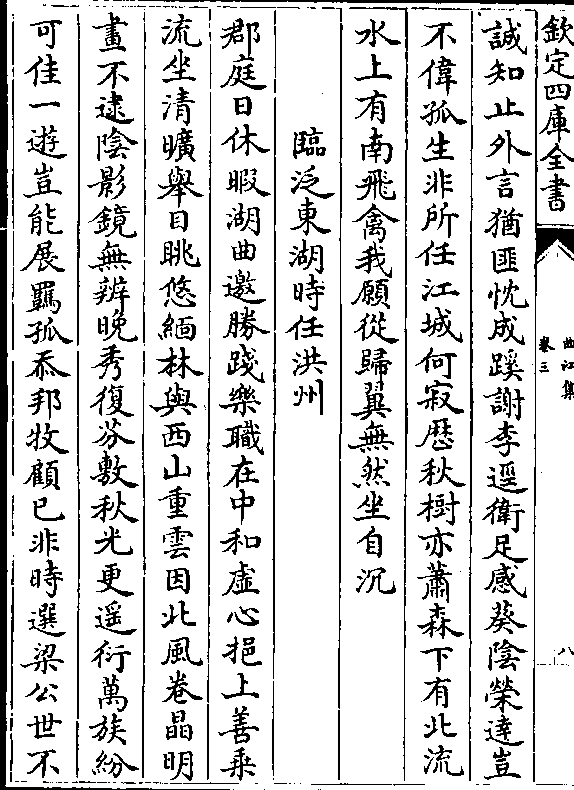 欽定四庫全書
曲江集
卷三
八
誠知止外言猶匪忱成蹊謝李逕衛足感葵陰榮達豈
不偉孤生非所任江城何寂歴秋樹亦蕭森下有北流
水上有南飛禽我願從歸翼無然坐自沉
臨泛東湖時任洪州
郡庭日休暇湖曲邀勝踐樂職在中和虚心挹上善乗
流坐清曠舉目眺悠緬林與西山重雲因北風卷晶明
畫不逮陰影鏡無辨晚秀復芬敷秋光更遥衍萬族紛
可佳一遊豈能展羈孤忝邦牧顧已非時選梁公世不